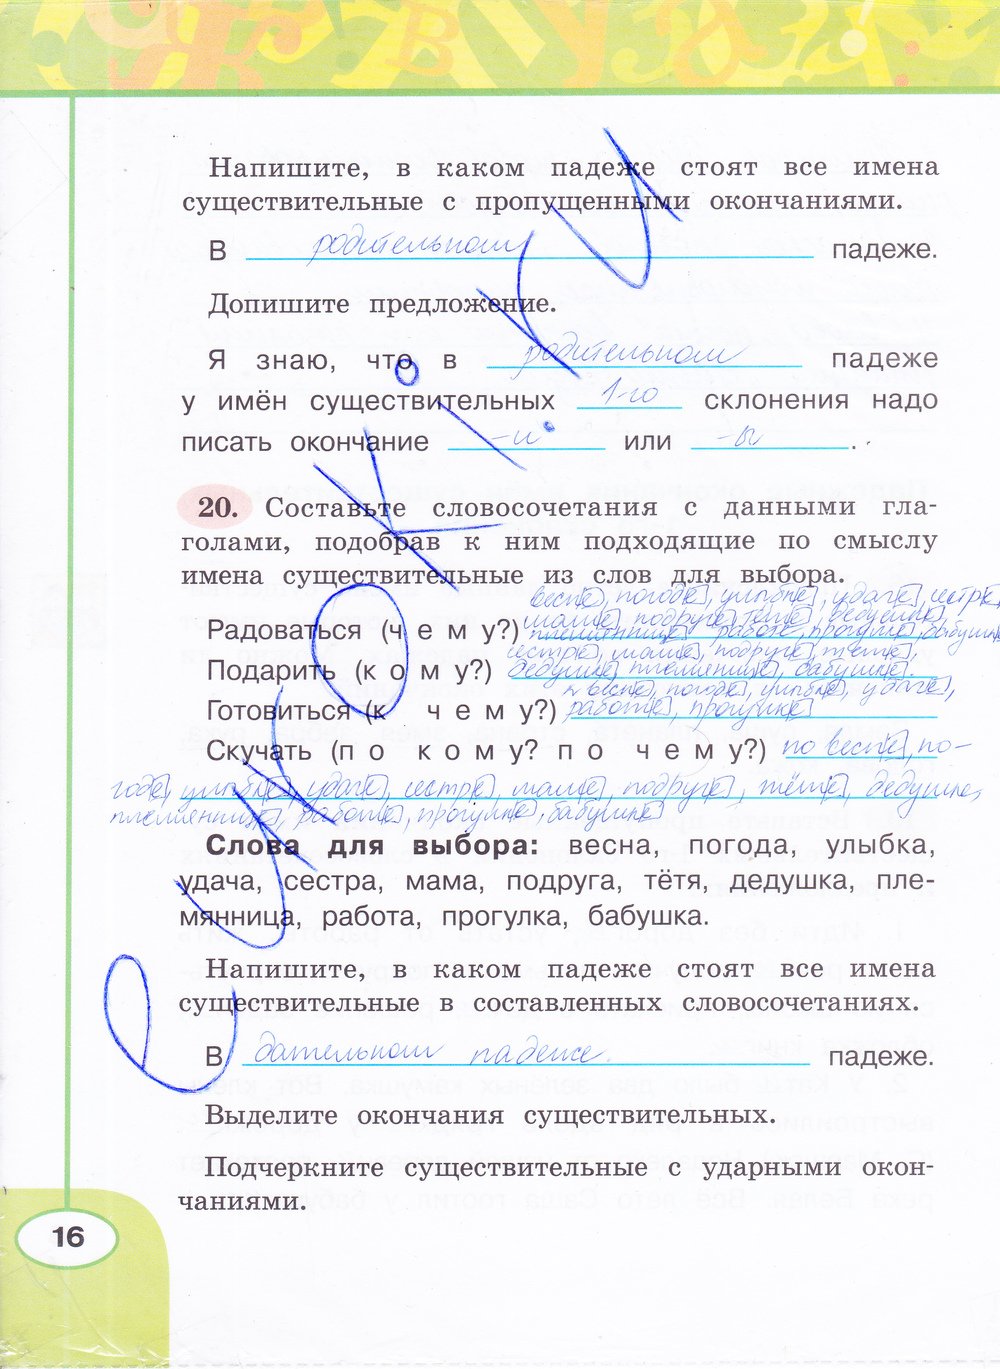 Напишите, в каком падеже стоят все имена
существительные с пропущенными окончаниями.
В родительном падеже.
Допишите предложение.
Я знаю, что в родительном падеже
у имён существительных 1-го склонения надо
писать окончание -и или -ы.
20. Составьте словосочетания с данными гла-
голами, подобрав к ним подходящие по смыслу
имена существительные из слов для выбора.
весне, погоде, улыбке, удаче, сестре,
маме, подруге, тёте, дедушке,
Радоваться (ч е м у?) племяннице, работе, прогулке, бабушке
сестре, маме, подруге, тёте,
Подарить (к о м у?) дедушке, племяннице, бабушке.
к весне, погоде, улыбке, удаче,
Готовиться (к ч е м у?) работе, прогулке
Скучать (п о к о м у? п о ч е м у?) по весне, по-
годе, улыбке, удаче, сестре, маме, подруге, тёте, дедушке,
племяннице, работе, прогулке, бабушке
Слова для выбора: весна, погода, улыбка,
удача, сестра, мама, подруга, тётя, дедушка, пле-
мянница, работа, прогулка, бабушка.
Напишите, в каком падеже стоят все имена
существительные в составленных словосочетаниях.
В дательном падеже. падеже.
Выделите окончания существительных.
Подчеркните существительные с ударными окон-
чаниями.
16
еuroki.ru